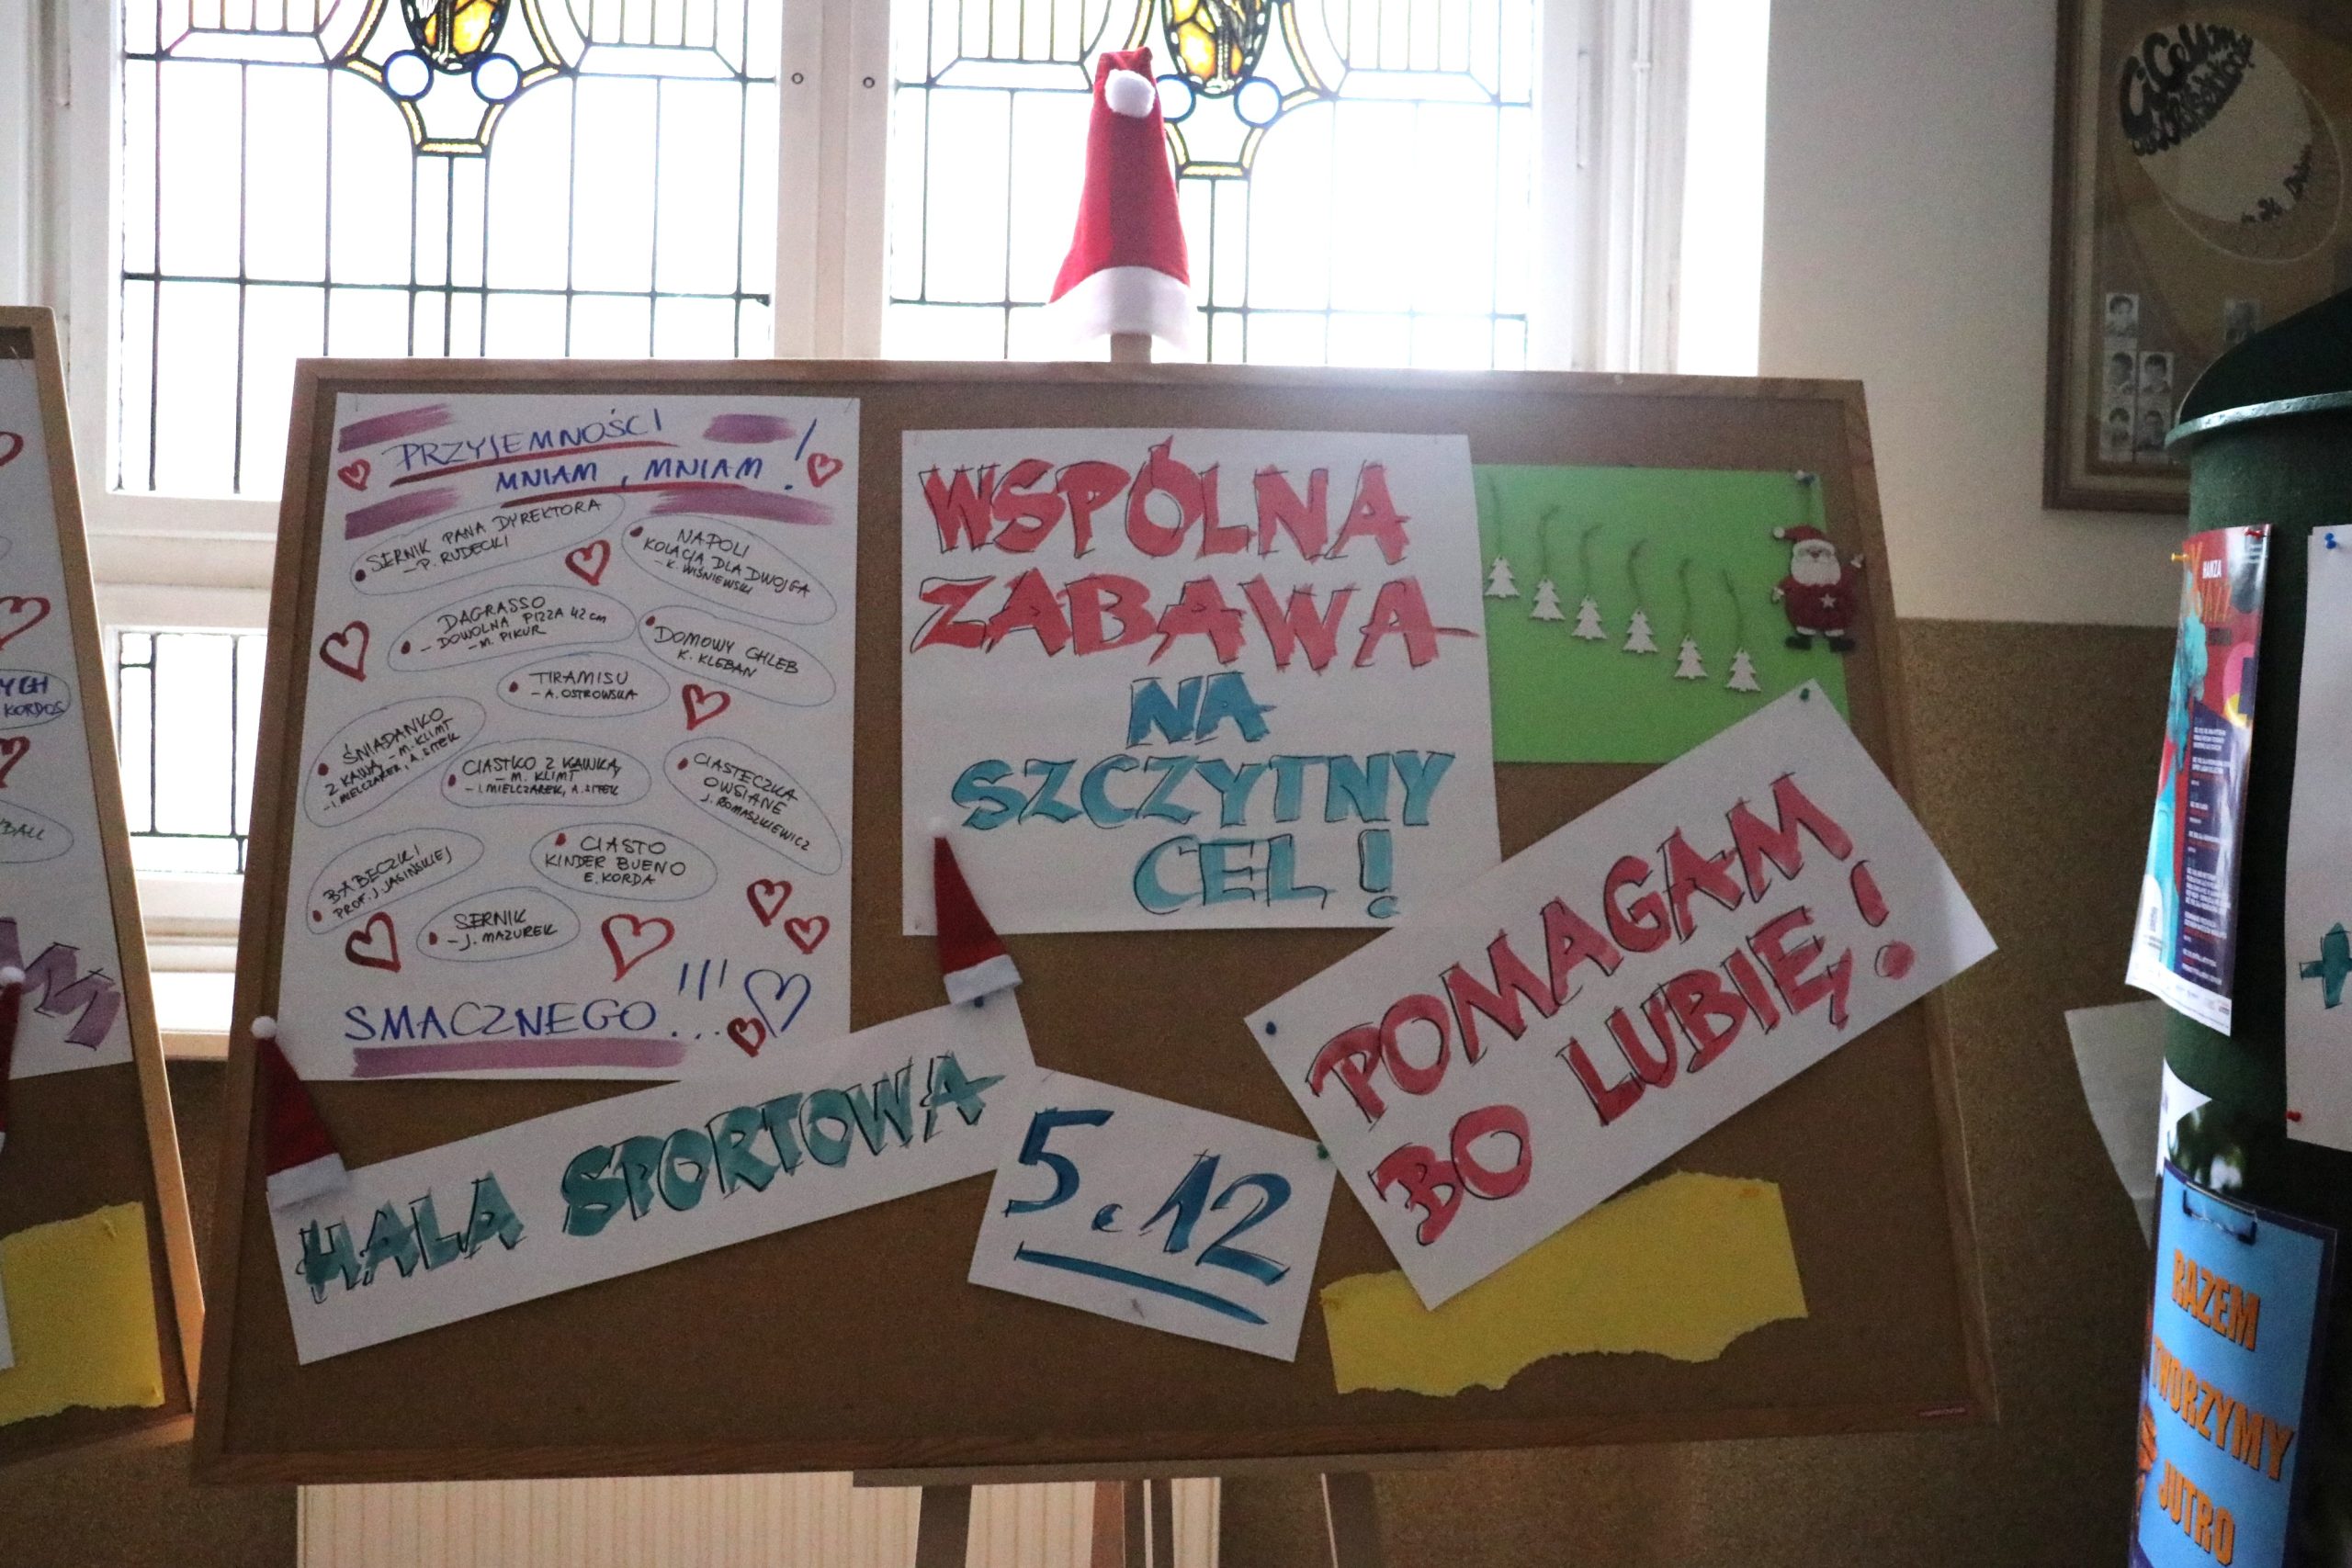 PRZYJEMNOŚCI
MNIAM, MNIAM!
SERNIK PANA DYREKTORA
– P. RUDECKI
NAPOLI
KOLACJA DLA DWOJGA
– K. WIŚNIEWSKI
DAGRASSO
– DOWOLNA PIZZA 42 cm
– M. PIKUR
DOMOWY CHLEB
K. KLEBAN
TIRAMISU
– A. OSTROWSKA
ŚNIADANKO
Z KAWĄ – M. KLIMT
– I. MIELCZAREK, A. SITEK
CIASTKO Z KAWKĄ
– M. KLIMT
– I. MIELCZAREK, A. SITEK
CIASTECZKA
OWSIANE
J. ROMASZKIEWICZ
BABECZKI
PROF. J. JASIŃSKIEJ
CIASTO
KINDER BUENO
E. KORDA
SERNIK
– J. MAZUREK
SMACZNEGO...!!!
WSPÓLNA
ZABAWA
NA
SZCZYTNY
CEL!
POMAGAM
BO LUBIĘ!
HALA SPORTOWA
5.12
KORDOS
RAZEM
TWORZYMY
JUTRO